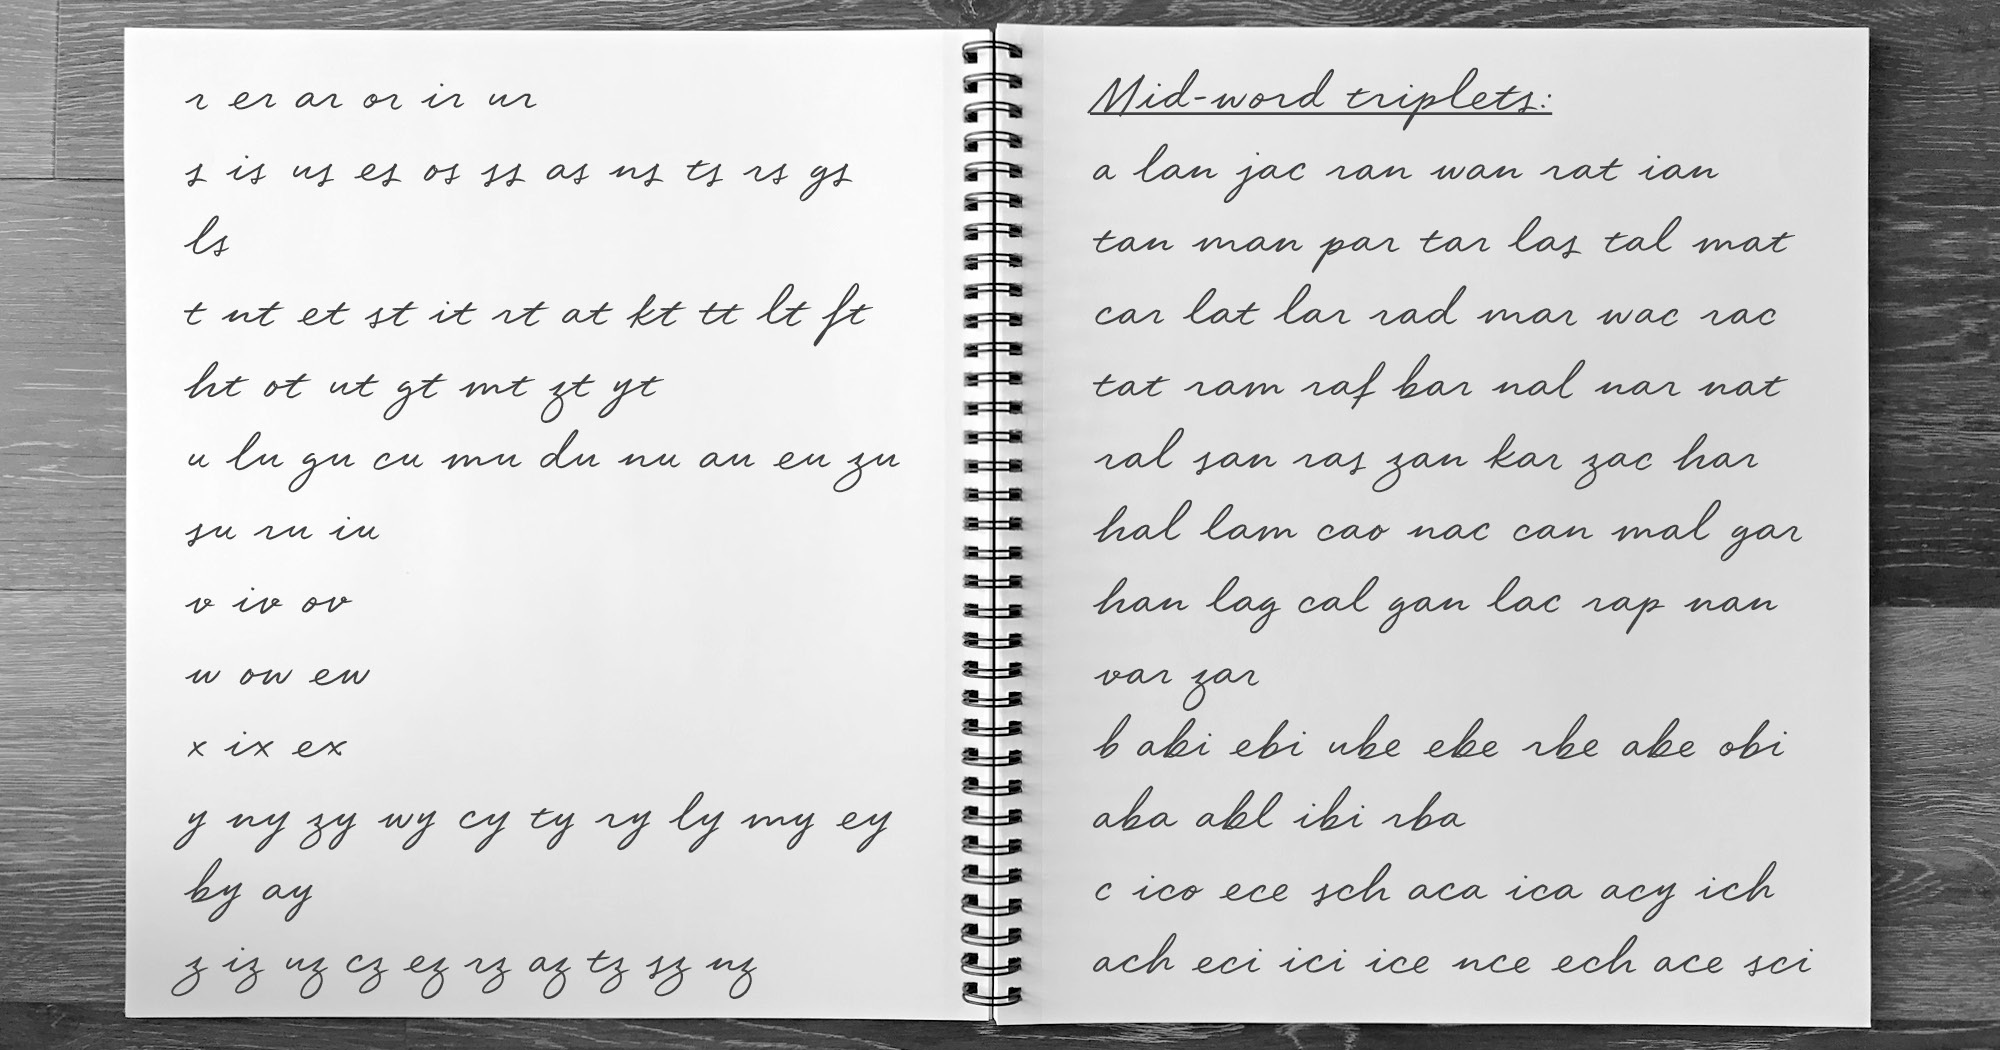 r er ar or ir ur
s is us es os ss as ns ts rs gs
ls
t nt et st it rt at kt tt lt ft
ht ot ut gt mt zt yt
u lu gu cu mu du nu au eu zu
su ru iu
v iv ov
w ow ew
x ix ex
y ny zy wy cy ty ry ly my ey
by ay
z iz uz cz ez rz az tz sz nz
Mid-word triplets:
a lan jac ran wan rat ian
tan man par tar las tal mat
car lat lar rad mar wac rac
tat ram raf bar nal nar nat
ral san ras zan kar zac har
hal lam cao nac can mal gar
han lag cal gan lac rap nan
var zar
b abi ebi ube ebe rbe abe obi
aba abl ibi rba
c ico ece sch aca ica acy ich
ach eci ici ice nce ech ace sci